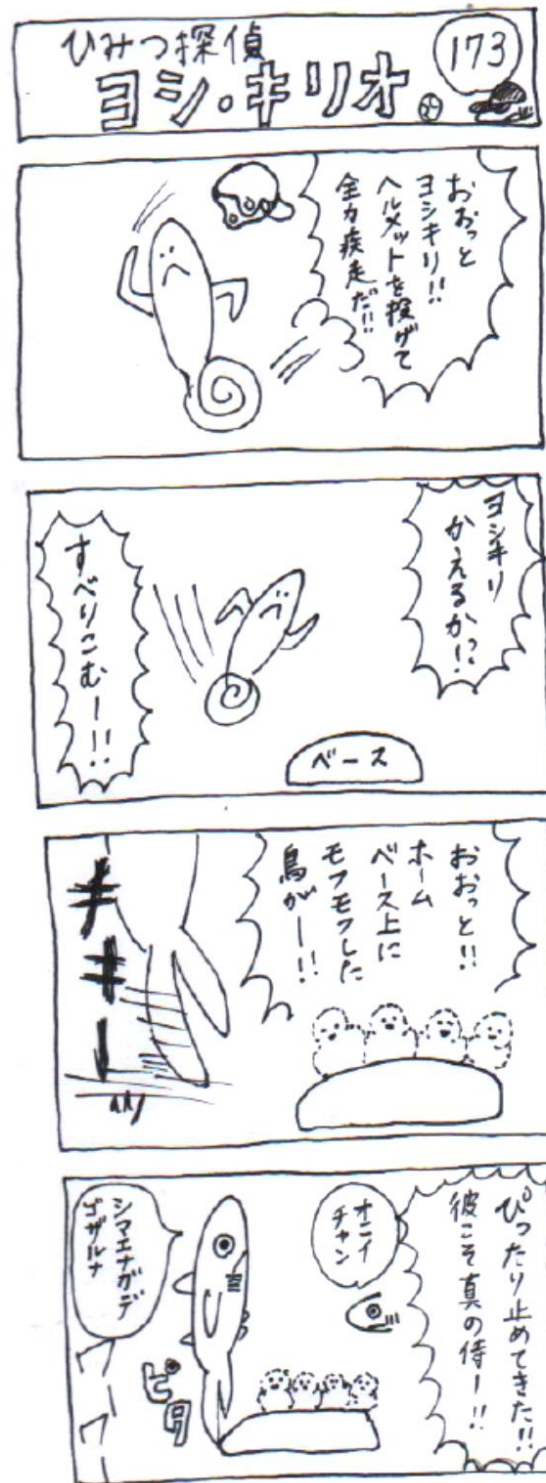 ひみつ探偵
ヨシ・キリオ。
173
おおっと
ヨシキリ!!
ヘルメットを投げて
全力疾走だ!!
ヨシキリ
かえるか!?
すべりこむー!!
ベース
おおっと!!
ホーム
ベース上に
モフモフした
鳥がー!!
キキーッ
ぴったり止めてきた!!
彼こそ真の侍ー!!
オニイ
チャン
シマエナガデ
ゴザルナ
ピタ
ワーワー